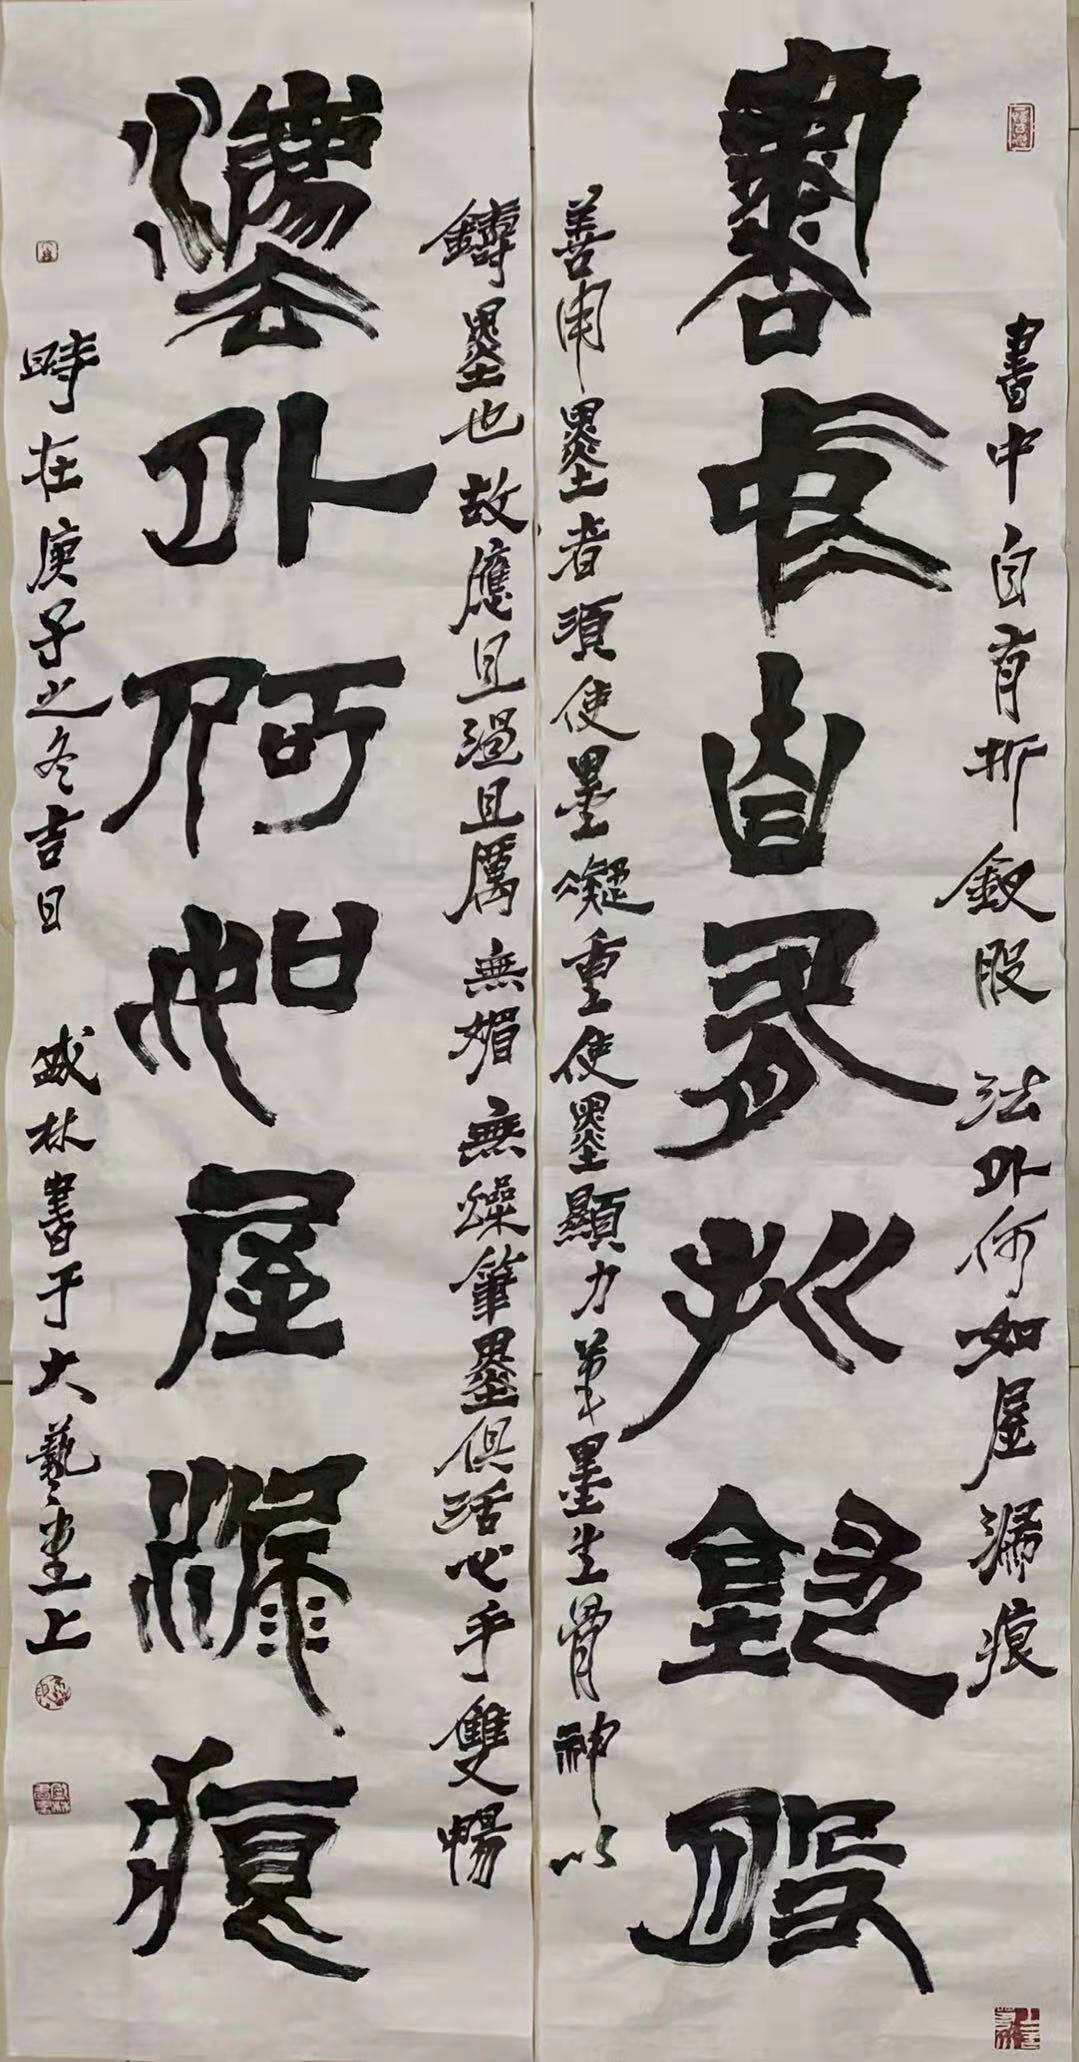 書中自有折釵股 法外何如屋漏痕
書中自有折釵股
善用墨者須使墨凝重使墨顯力第墨生骨神以
鑄墨也故應且過且厲無媚無燥筆墨俱活心手雙暢
灋外何如屋漏痕
時在庚子之冬吉日 盛林書于大藝堂上